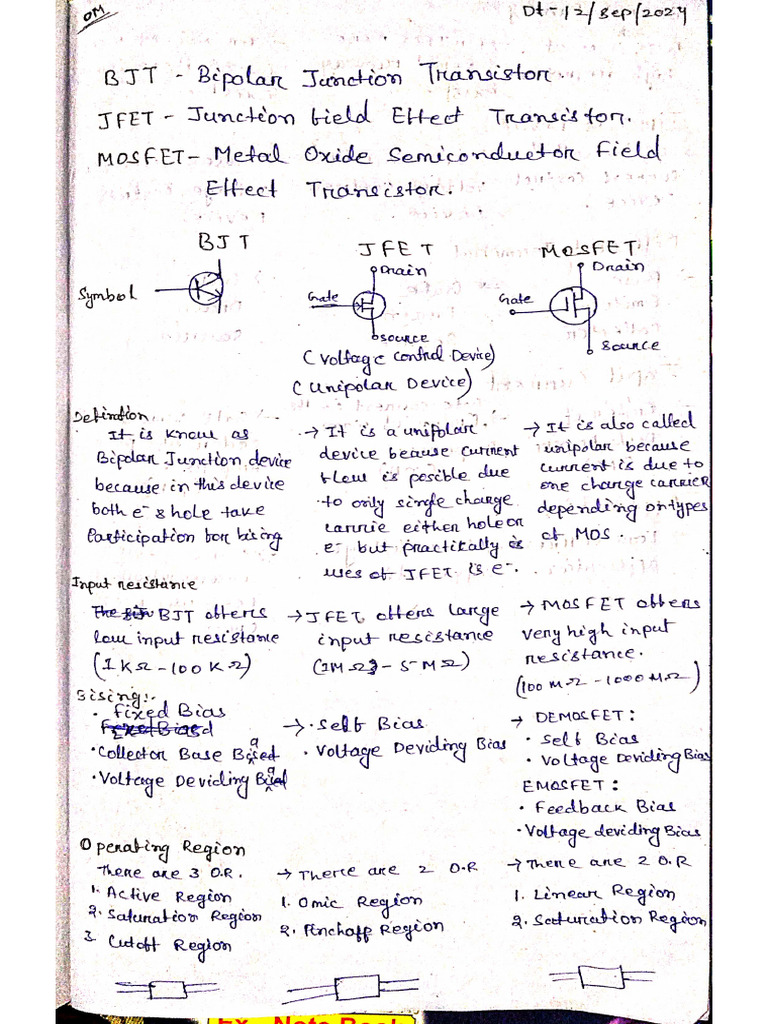 OM
Dt-12/Sep/2024
BJT - Bipolar Junction Transistor.
JFET - Junction field Effect Transistor.
MOSFET- Metal Oxide Semiconductor Field
Effect Transistor.
BJT
JFET
MOSFET
Symbol
Drain
Gate
source
(Voltage Control Device)
(Unipolar Device)
Drain
Gate
source
Defination
It is know as
Bipolar Junction device
because in this device
both e- & hole take
Participation for bising
→ It is a unipolar
device beause current
flow is posible due
to only single charge
carrie either hole or
e- but practikally is
uses of JFET is e-.
→ It is also called
unipolar because
current is due to
one charge carrier
depending on types
of MOS.
Input resistance
BJT offers
low input resistance
(1KΩ-100KΩ)
→ JFET offers large
input resistance
(1MΩ - 5MΩ)
→ MOSFET offers
very high input
resistance.
(100MΩ-1000MΩ)
Bising:-
• Fixed Bias
Fixed Biased
• Collector Base Biased
• Voltage Deviding Bias
→ • Self Bias
• Voltage Deviding Bias
→ DEMOSFET:
• Self Bias
• Voltage Deviding Bias
EMOSFET:
• Feedback Bias
• Voltage deviding Bias
Operating Region
There are 3 O.R.
1. Active Region
2. Saturation Region
3. Cutoff Region
→ There are 2 O.R
1. Omic Region
2. Pinchoff Region
→ There are 2 O.R
1. Linear Region
2. Saturation Region